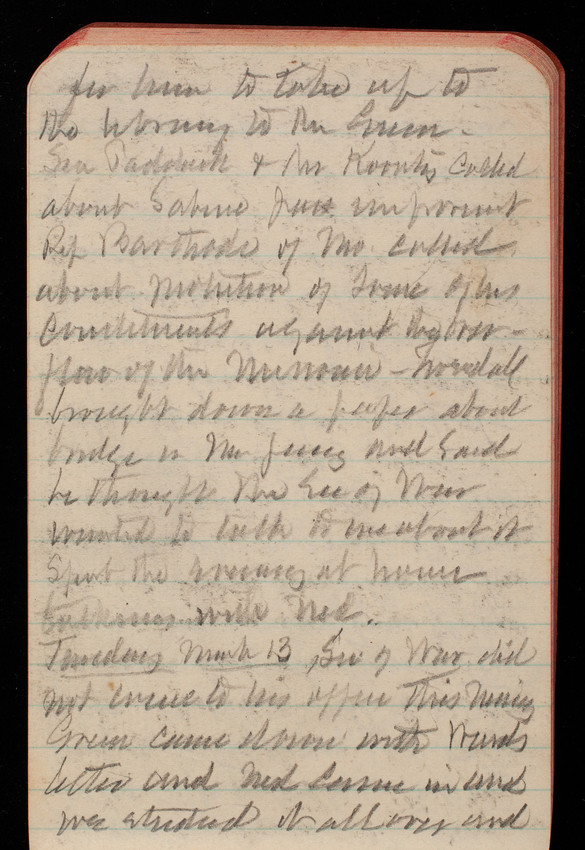 for him to take up to
the library to Mr Green.
Sen Paddock & Mr Koontz called
about Sabine Pass improvmt
Rep Bartholdt of Mo called
about petition of some of his
Constituents against the over-
flow of the Missouri -
brought down a paper about
bridge in and said
he thought the Sec of War
wanted to talk to me about it
Spent the evening at home
talking with Ned.
Tuesday March 13, Sec of War did
not come to his office this morning
Green came down with Wards
letter and Ned came in and
we studied it all over and